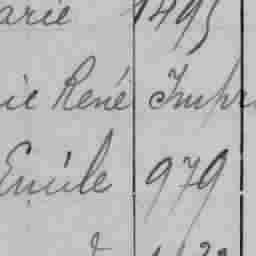 arie 1495
ie René Impr
Emile 979